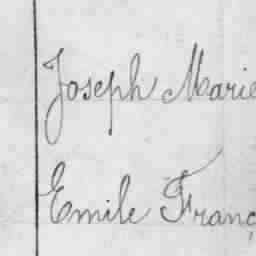 Joseph Marie
Emile Franç